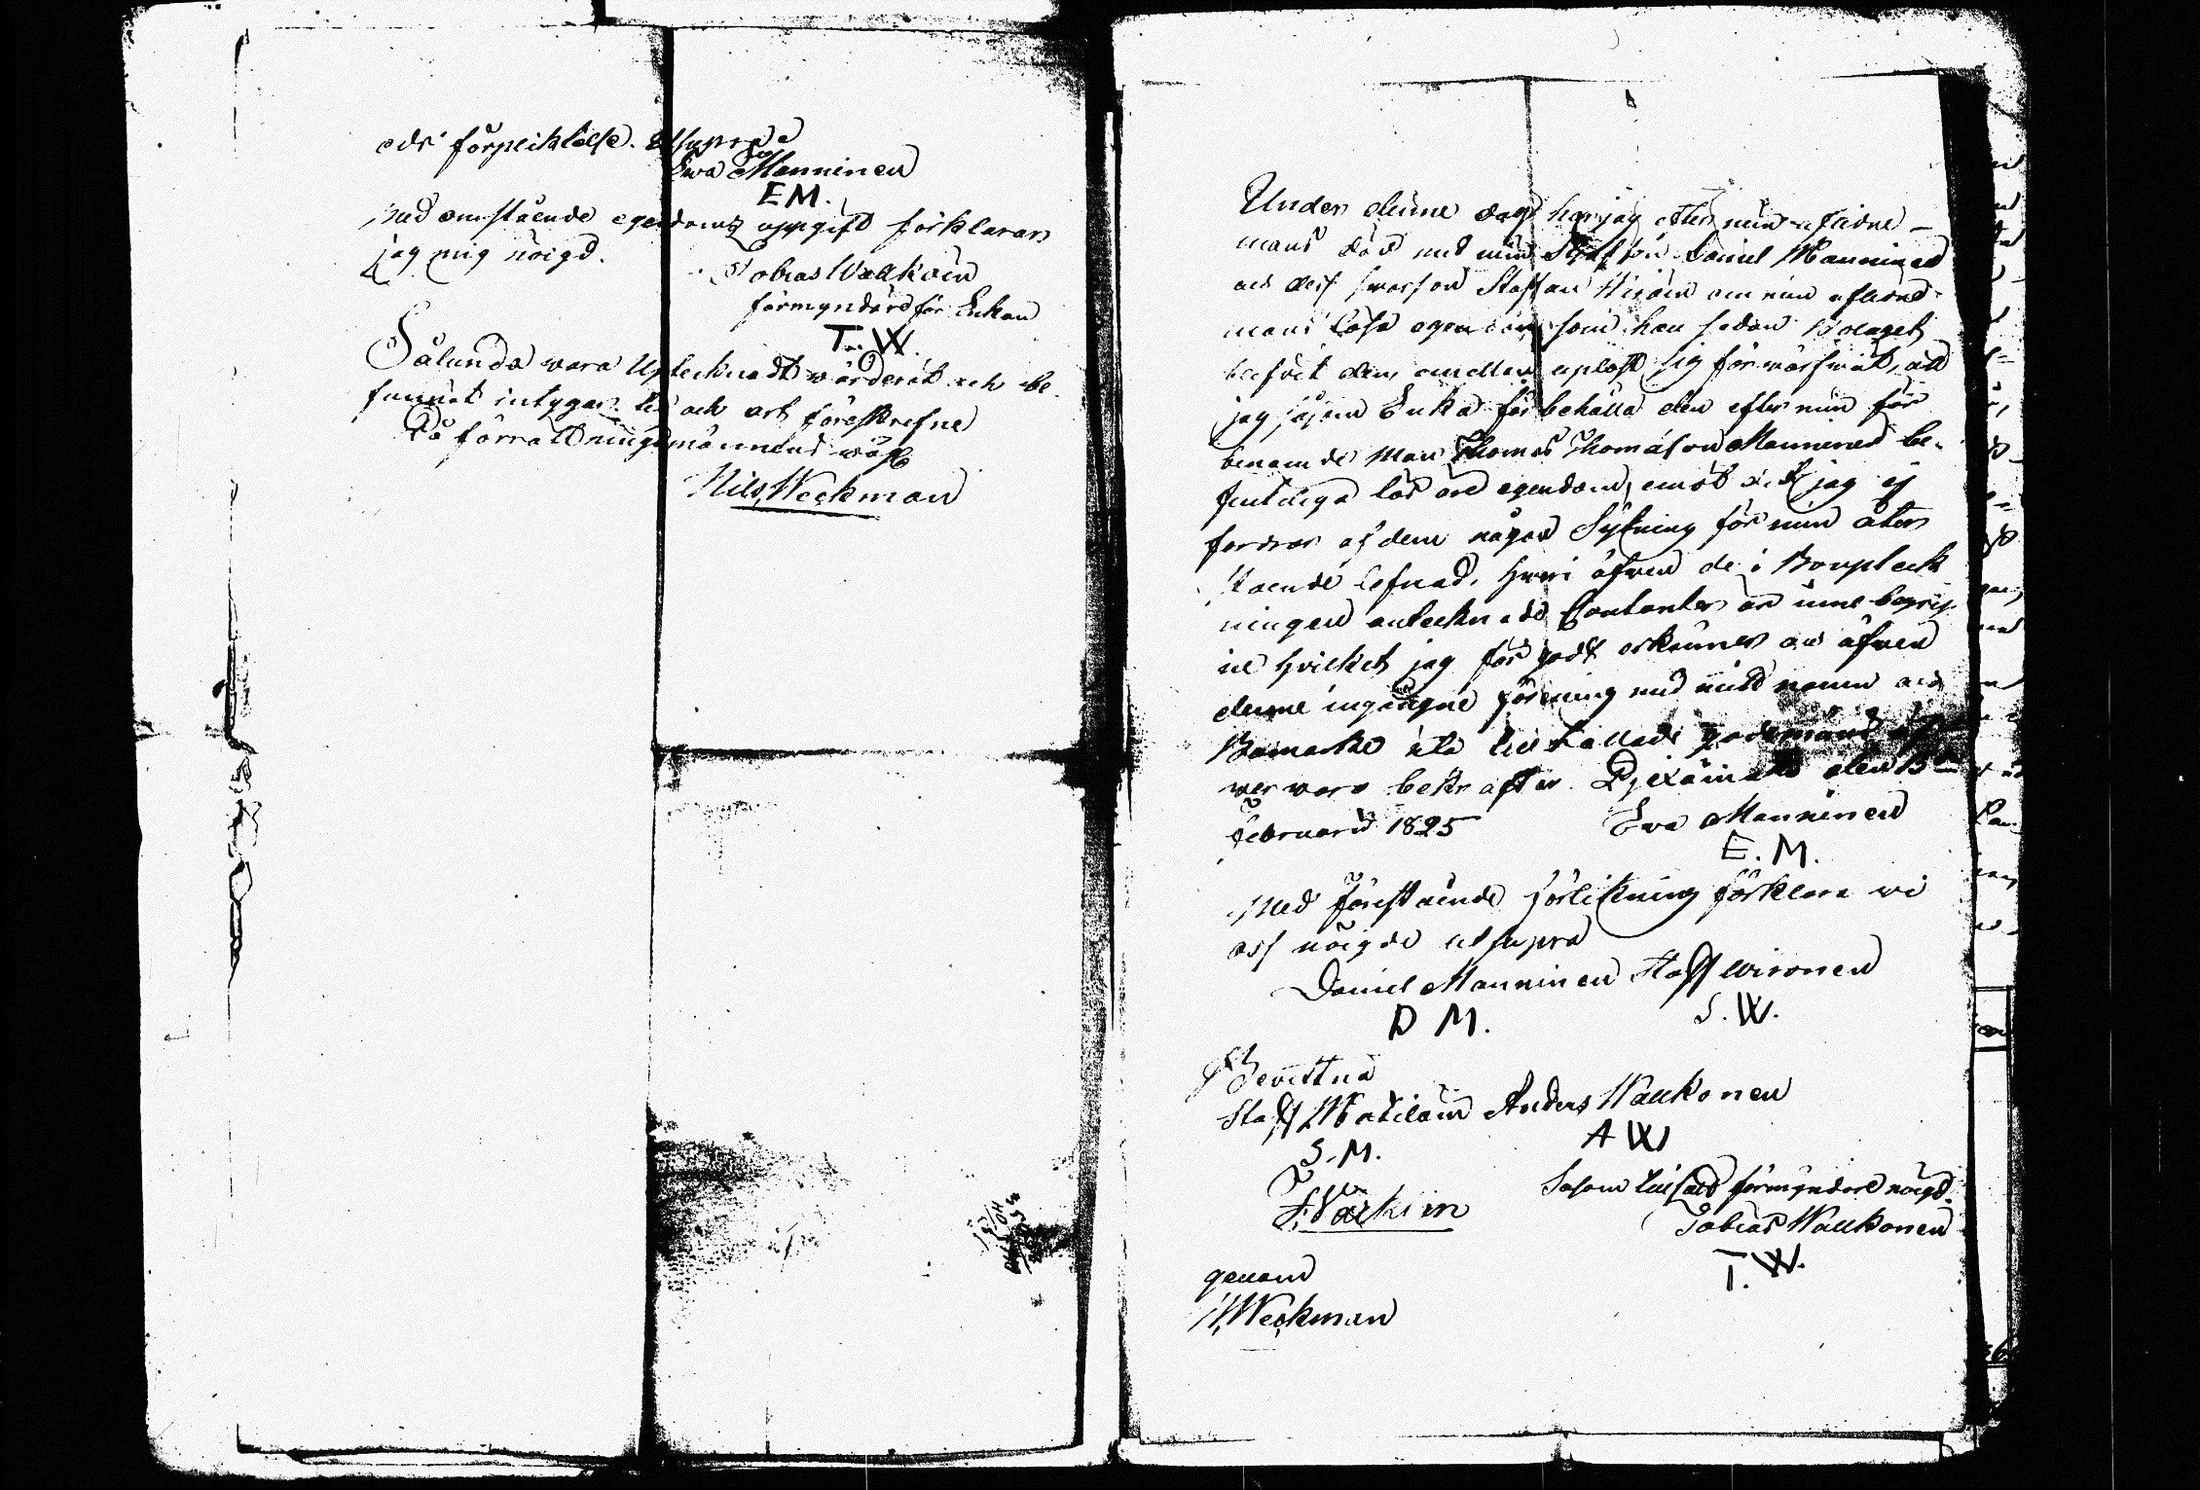 eds förpliktelse. Utsupra
Ewa Manninen
EM.
Med omstående egendoms uppgift förklarar
jag mig nöigd.
Tobias Wallkoin
förmyndare för Enkan
T. W.
Sålunda vara Upteknadt wärderat och be-
funnit intygar. tid och ort föreskrefne
På förrättningsmännens wägn
Nils Weckman
Under denne dag har jag efter min afledne
mans död med min Daniel Manninen
och dess swarson Staffan om min afledne
mans lösa egendom som han sedan Bolaget
dem emellan uplöst sig förwärfwat, att
jag såsom Enka får behålla den efter min för
benämde Man Thomas Thomasson Manninen be-
finteliga lösöre egendom, emot det jag ej
fordrar af dem någon Sytning för min åter
stående lefnad, hwari äfwen de i Boupteck
ningen antecknade Contanter är inne begrip
ne hvilket jag för godt erkänner och äfwen
denne ingångne förening med mitt namn och
Bomärke tillkallade godemäns öf
wer waro bekräftar. den
Februarii 1825
Ewa Manninen
E. M.
Med förestående förlikning förklara wi
oss nöigde utsupra
Daniel Manninen Staff Wironen
D M. S. W.
Bewittna
Staff Anders Wallkonen
S. M. A W
Såsom förmyndare nöigd.
Tobias Wallkonen
T. W.
genom
N. Weckman